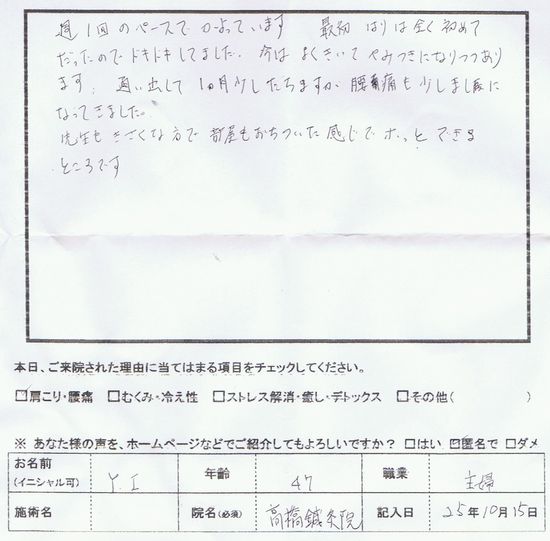 週1回のペースでかよっています 最初 はりは全く初めて
だったのでドキドキしてました。今は よくきいて やみつきになりつつあり
ます。通い出して 1ヵ月少したちますが 腰痛も少しましに
なってきました。
先生もきさくな方で 部屋もおちついた感じで ホッと できる
ところです
本日、ご来院された理由に当てはまる項目をチェックしてください。
☑肩こり・腰痛 □むくみ・冷え性 □ストレス解消・癒し・デトックス □その他( )
※ あなた様の声を、ホームページなどでご紹介してもよろしいですか? □はい ☑匿名で □ダメ
お名前 (イニシャル可) Y.I 年齢 47 職業 主婦
施術名 院名(必須) 高橋鍼灸院 記入日 25年10月15日